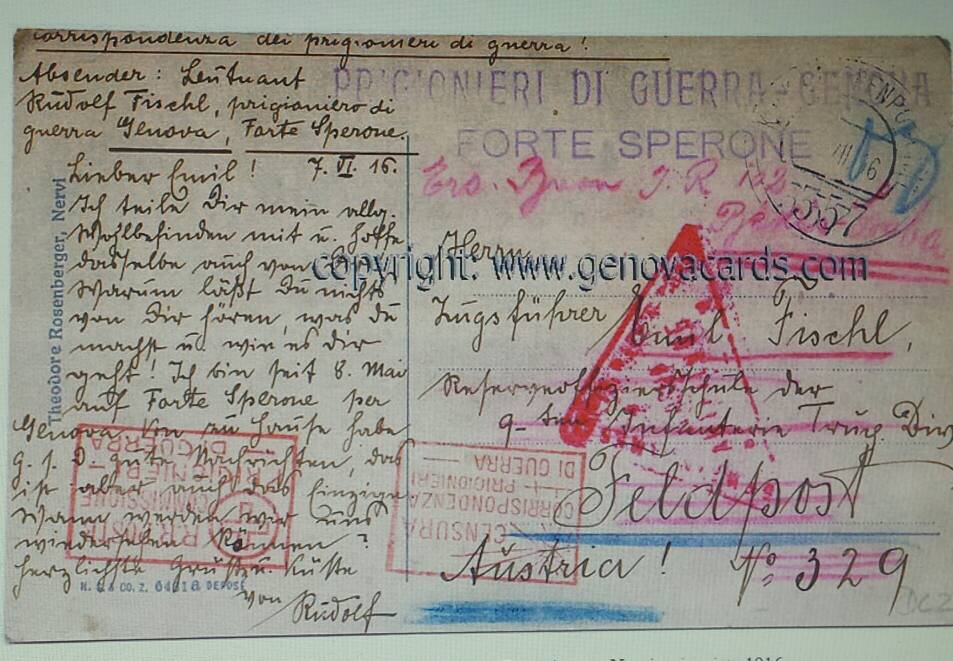 corrispondenza dei prigionieri di guerra!
Absender: Leutnant
Rudolf Fischl, prigioniero di
guerra Genova, Forte Sperone.
PRIGIONIERI DI GUERRA - GENOVA
FORTE SPERONE
7. VI. 16.
Lieber Emil!
Ich teile Dir mein allg.
Wohlbefinden mit u. hoffe
dasselbe auch von
Warum läßt Du nichts
von Dir hören, was du
machst u. wie es dir
geht! Ich bin seit 8. Mai
auf Forte Sperone per
Genova. Von zu Hause habe
g. s. D. gute Nachrichten, das
ist aber auch das Einzige
Wann werden wir uns
wiedersehen können?
herzlichste Grüße u. Küsse
von Rudolf
Theodore Rosenberger, Nervi
N. & Co. Z. 64218 DEPOSÉ
Herrn
Zugsführer Emil Fischl,
Reserveoffiziersschule der
9-ten Infanterie Trup. Div
Feldpost
Austria! No. 329
J. R. 102
337
copyright: www.genovacards.com
CENSURA
CORRISPONDENZA
PRIGIONIERI
DI GUERRA
COMMISSIONE
DI GUERRA
DCZ
1916